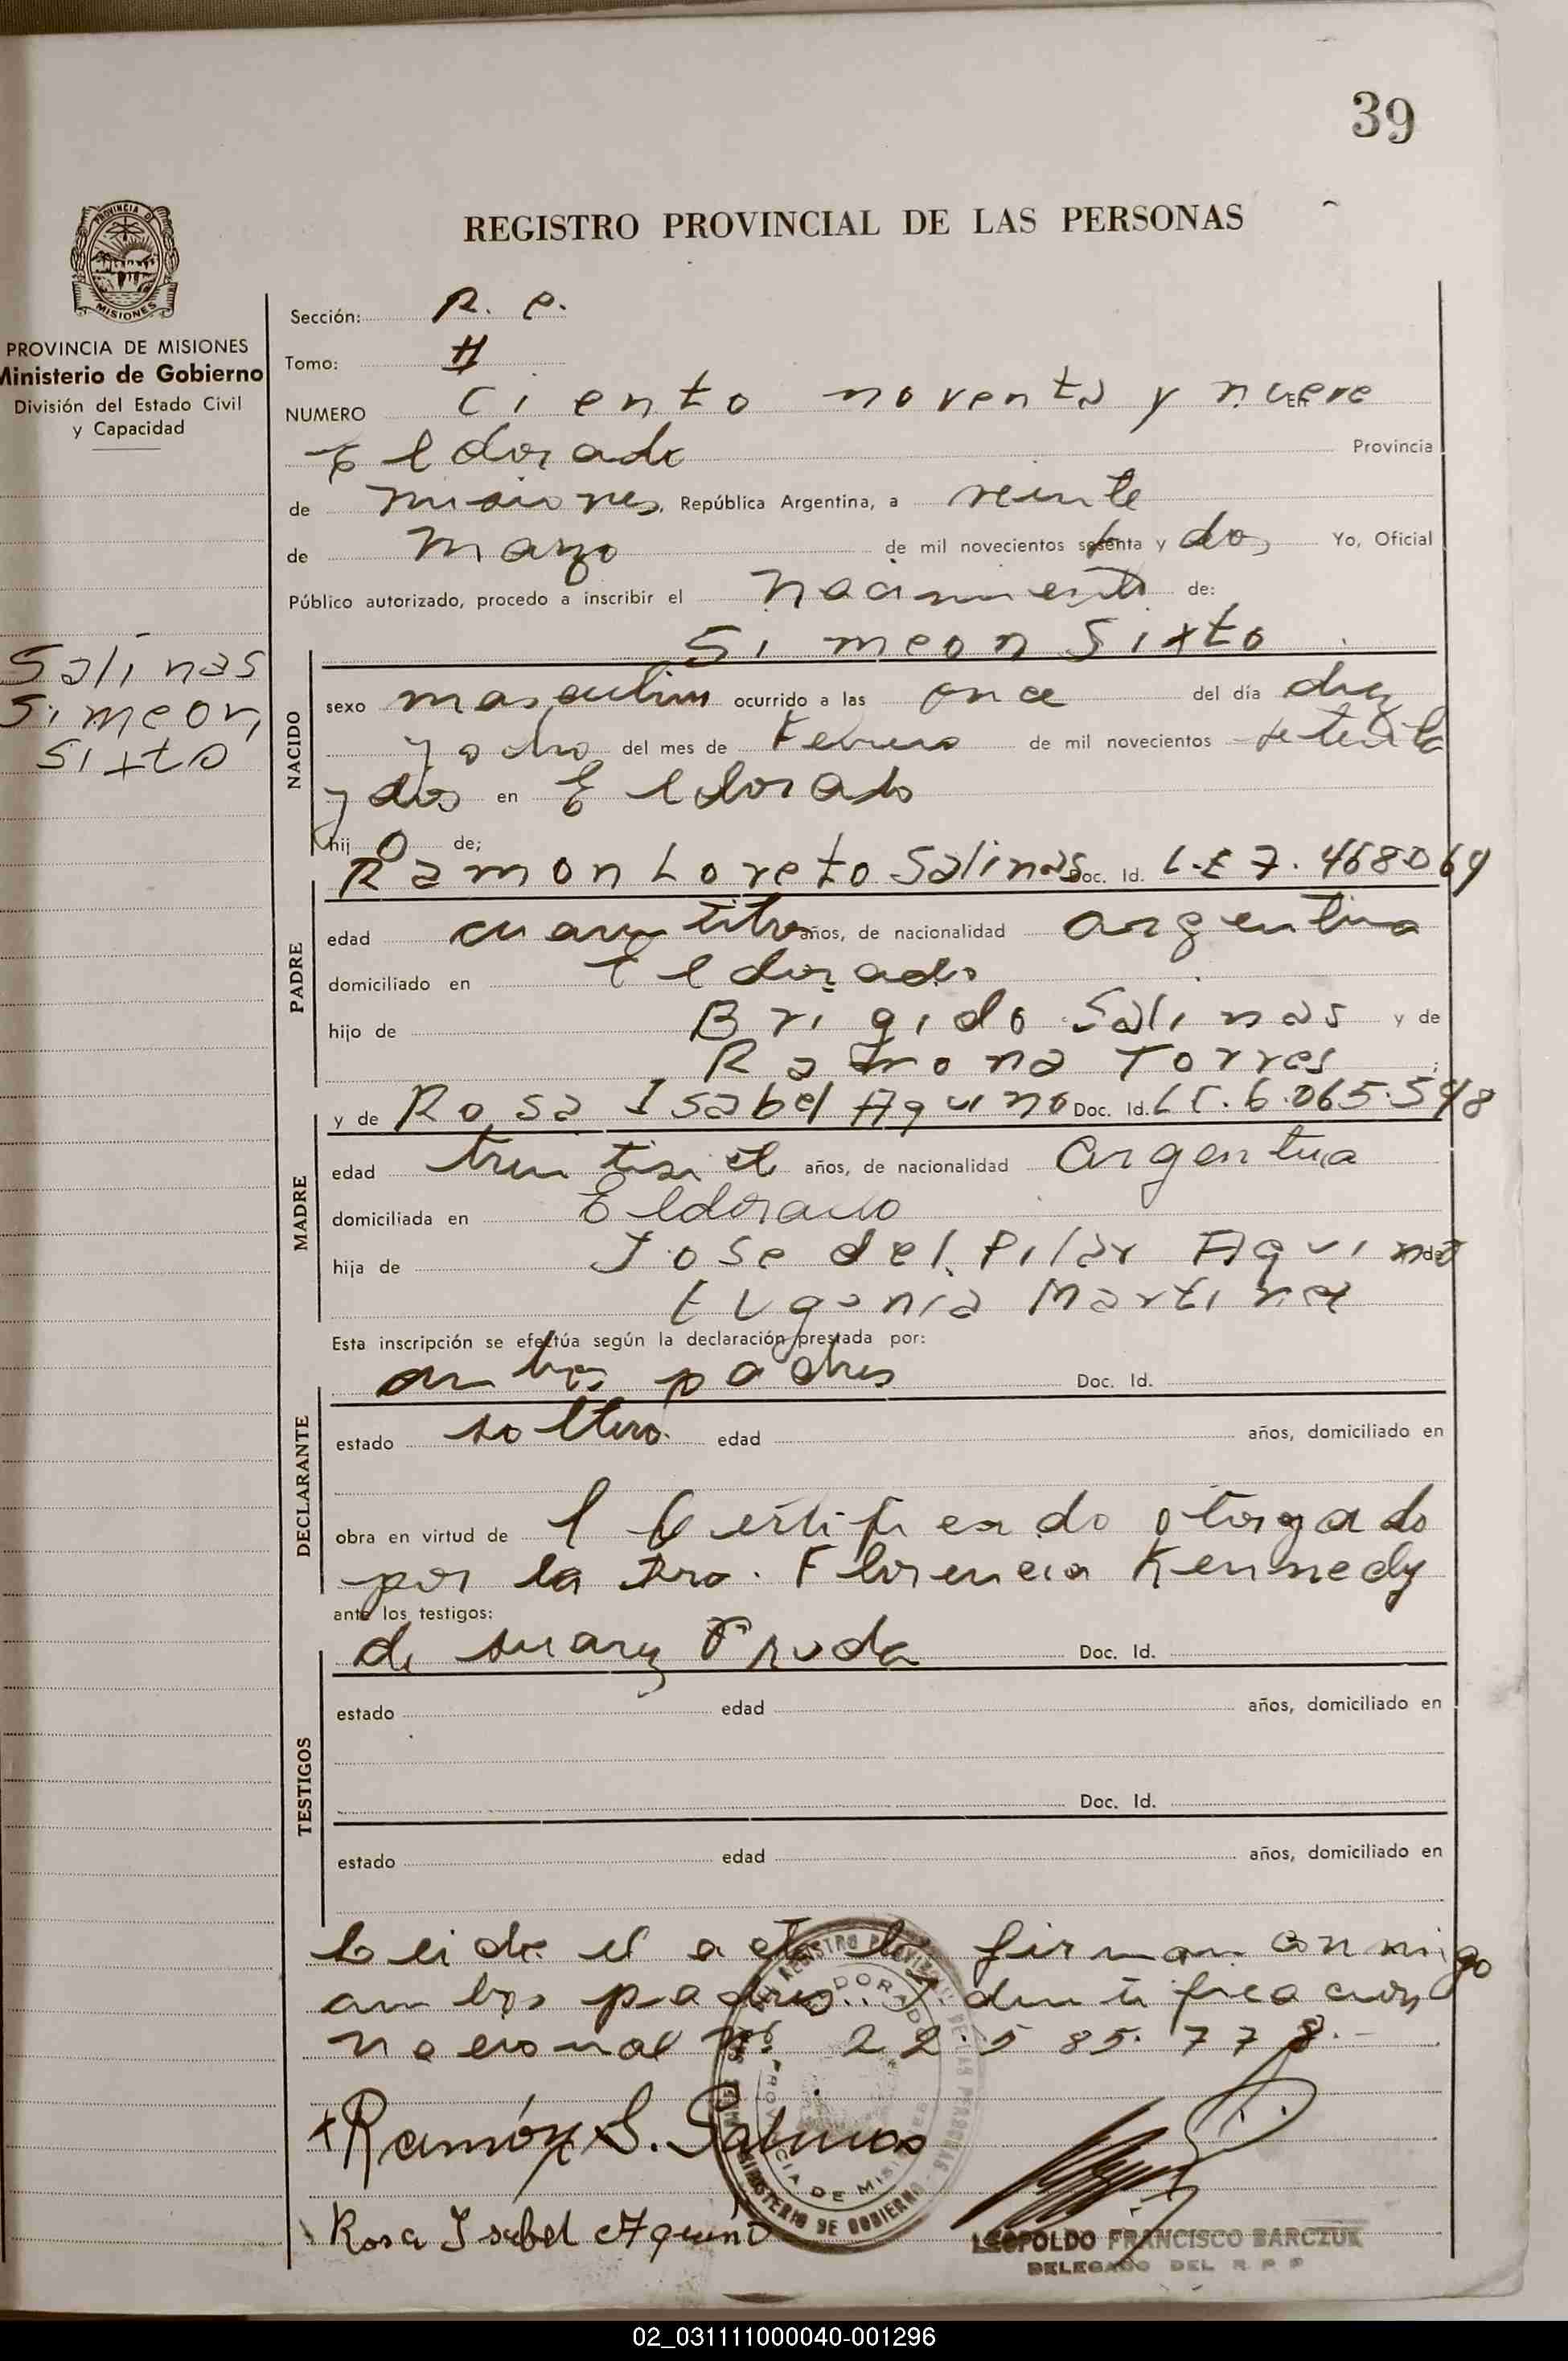 39
REGISTRO PROVINCIAL DE LAS PERSONAS
PROVINCIA DE
MISIONES
PROVINCIA DE MISIONES
Ministerio de Gobierno
División del Estado Civil
y Capacidad
Salinas
Simeon
Sixto
Sección: R. e.
Tomo: II
NUMERO Ciento noventa y nueve EN
Eldorado Provincia
de Misiones, República Argentina, a veinte
de Marzo de mil novecientos setenta y dos Yo, Oficial
Público autorizado, procedo a inscribir el Nacimiento de:
Simeon Sixto
NACIDO
sexo masculino ocurrido a las once del día diez
y ocho del mes de Febrero de mil novecientos setenta
y dos en Eldorado
hijo de;
Ramon Loreto Salinas Doc. Id. L.E 7.468064
PADRE
edad años, de nacionalidad argentina
domiciliado en Eldorado
hijo de Brigido Salinas y de
Ramona Torres
y de Rosa Isabel Aquino Doc. Id. LC.6.065.598
MADRE
edad años, de nacionalidad argentina
domiciliada en Eldorado
hija de Jose del Pilar Aquino y de
Eugenia Martinez
Esta inscripción se efectúa según la declaración prestada por:
ambos padres Doc. Id.
DECLARANTE
estado soltero edad años, domiciliado en
obra en virtud de l Certificado otorgado
por la Dra. Florencia Kennedy
ante los testigos:
de Suarez Doc. Id.
TESTIGOS
estado edad años, domiciliado en
Doc. Id.
estado edad años, domiciliado en
Leida el acta la firman conmigo
ambos padres. Identificacion
Nacional Nº 22.585.778.-
Ramón L. Salinas
Rosa Isabel Aquino
REGISTRO PROVINCIAL DE LAS PERSONAS
MINISTERIO DE GOBIERNO
ELDORADO
PROVINCIA DE MISIONES
LEOPOLDO FRANCISCO BARCZUK
DELEGADO DEL R P P
02_031111000040-001296